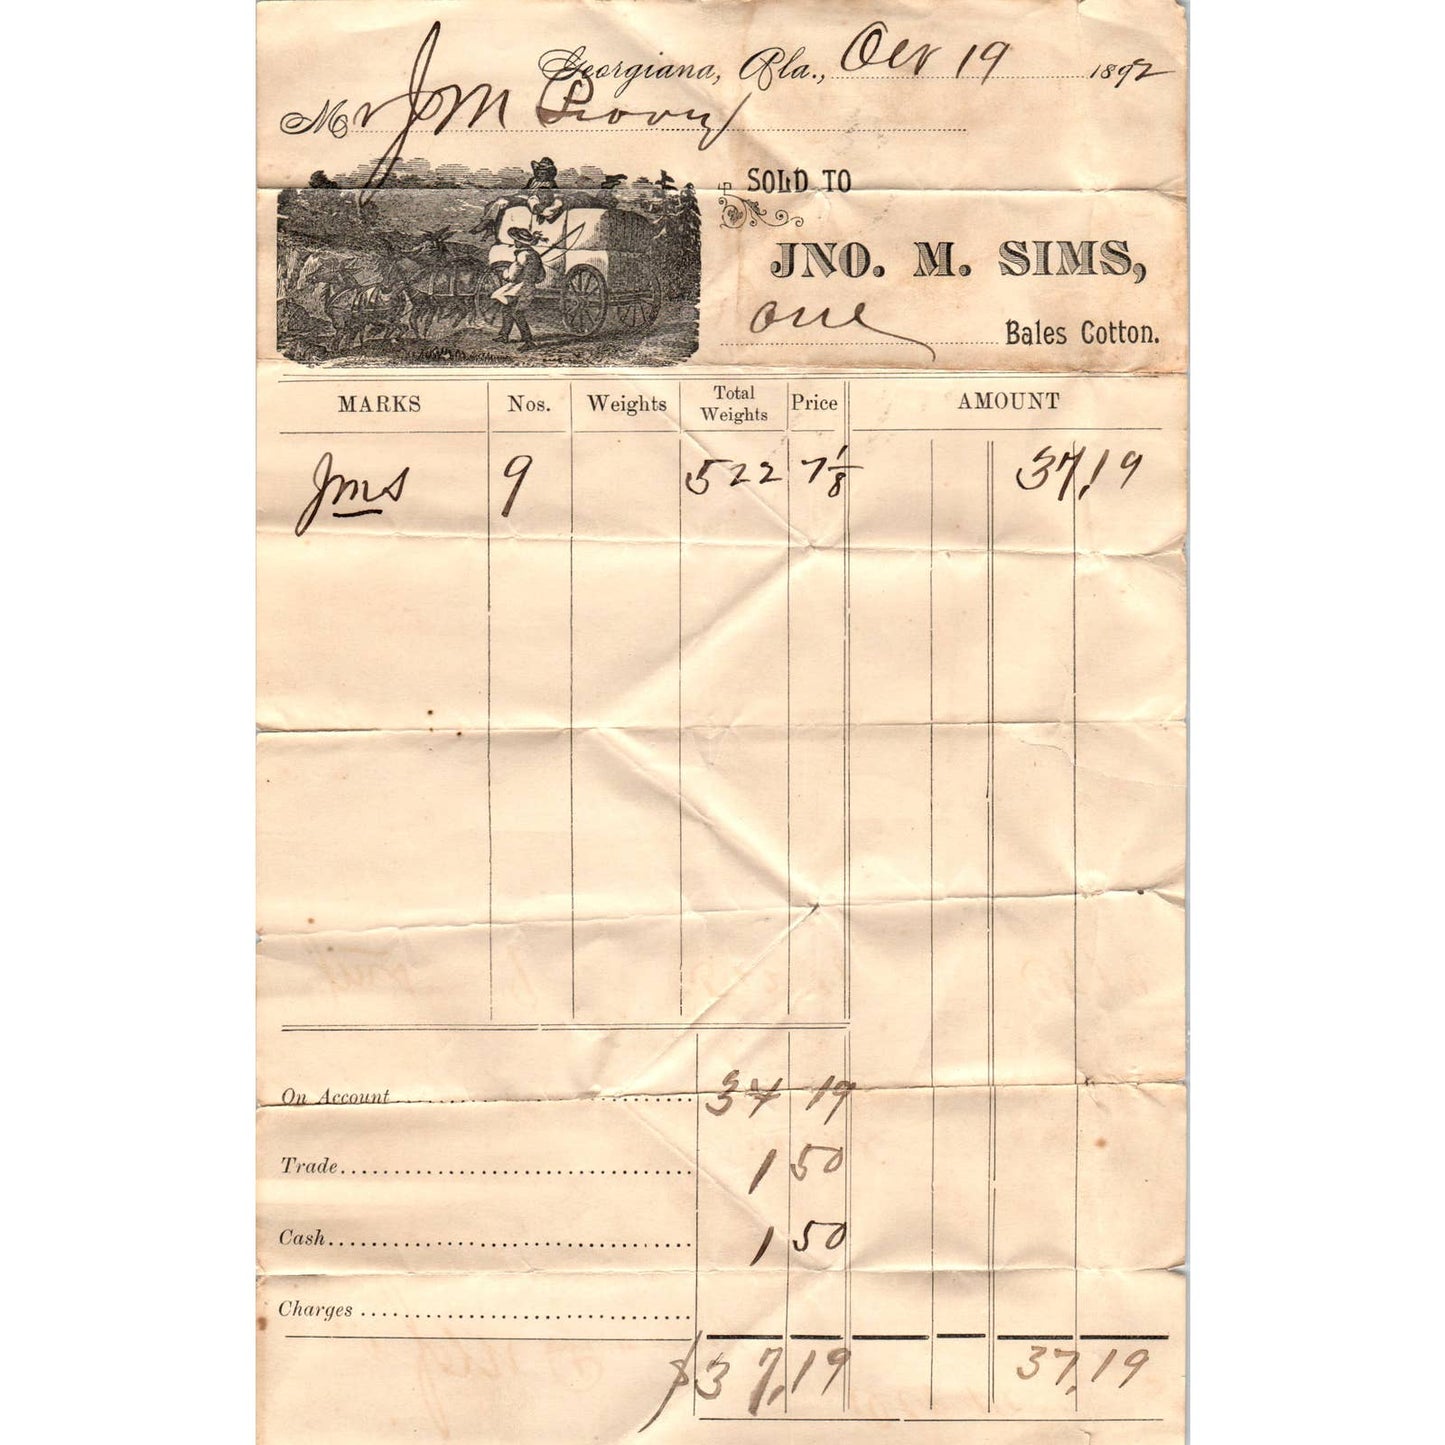 Georgiana, Ala., Oct 19 1892
Mr J M
SOLD TO
JNO. M. SIMS,
one Bales Cotton.
MARKS Nos. Weights Total Weights Price AMOUNT
JMS 9 522 7 1/8 37.19
On Account 34 19
Trade 1 50
Cash 1 50
Charges
$37.19 37.19